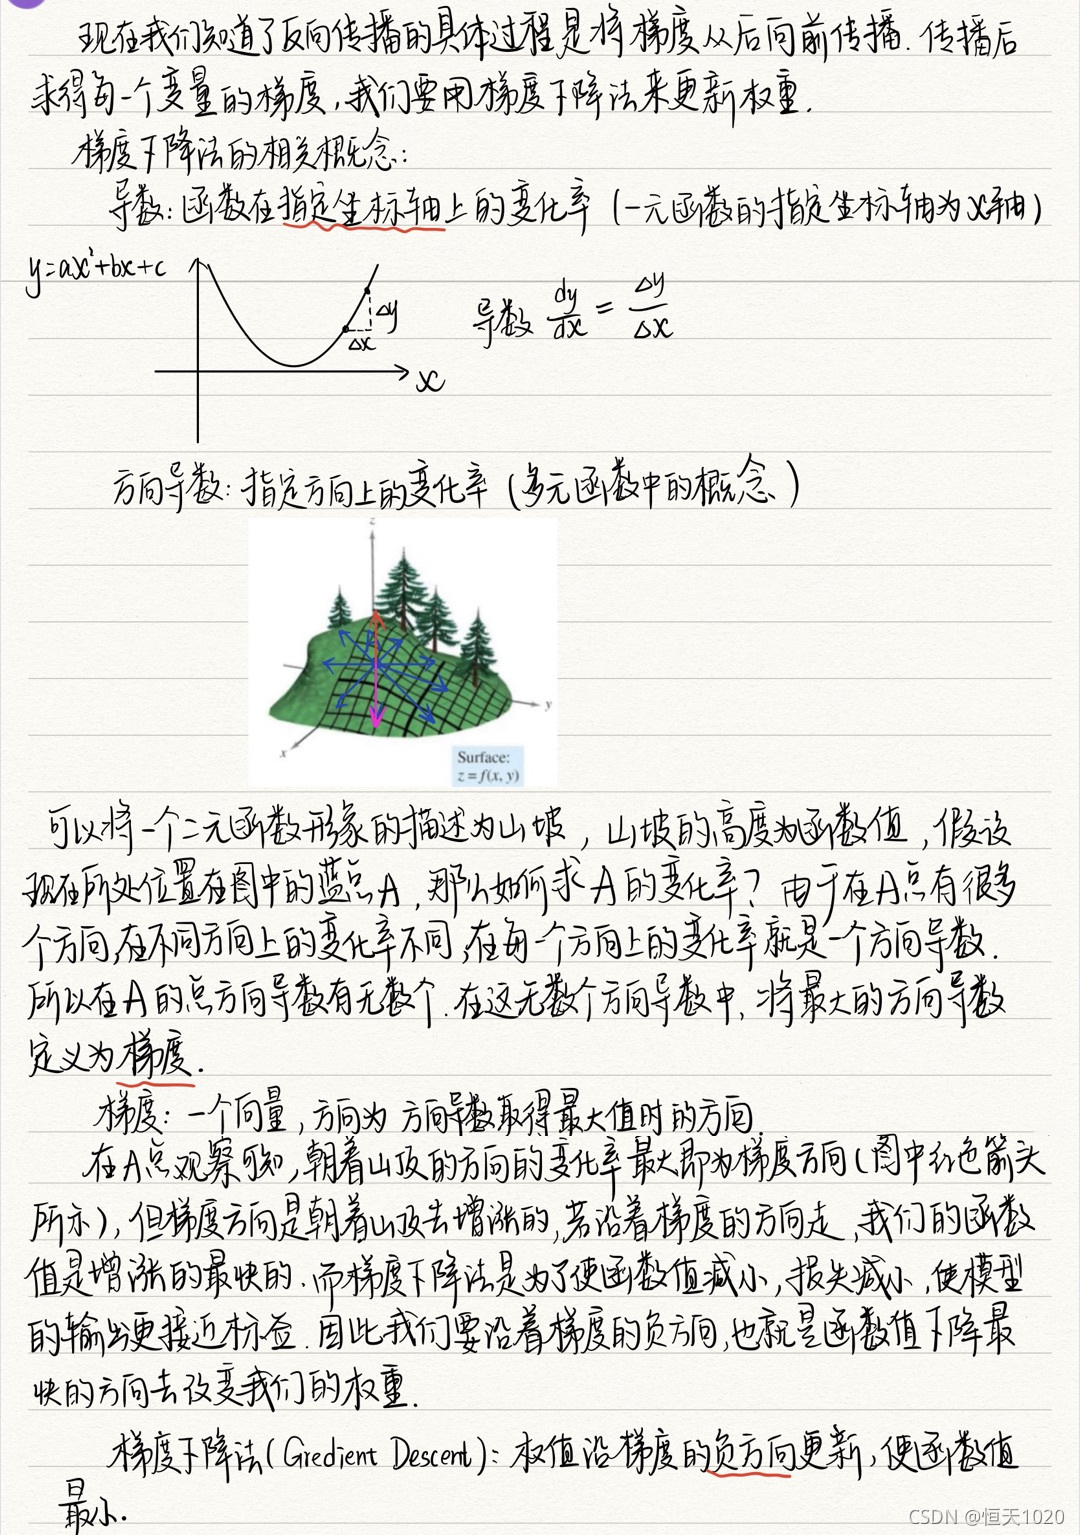 现在我们知道了反向传播的具体过程是将梯度从后向前传播. 传播后
求得每一个变量的梯度,我们要用梯度下降法来更新权重.
梯度下降法的相关概念:
导数: 函数在指定坐标轴上的变化率 (一元函数的指定坐标轴为x轴)
y=ax²+bx+c
Δy
Δx
x
导数 dy/dx = Δy/Δx
方向导数: 指定方向上的变化率 (多元函数中的概念)
z
y
x
Surface:
z = f(x, y)
可以将一个二元函数形象的描述为山坡, 山坡的高度为函数值, 假设
现在所处位置在图中的蓝点A, 那么如何求A的变化率? 由于在A点有很多
个方向,在不同方向上的变化率不同,在每一个方向上的变化率就是一个方向导数.
所以在A的点方向导数有无数个. 在这无数个方向导数中, 将最大的方向导数
定义为梯度.
梯度: 一个向量, 方向为 方向导数取得最大值时的方向.
在A点观察可知, 朝着山顶的方向的变化率最大即为梯度方向(图中红色箭头
所示), 但梯度方向是朝着山顶去增涨的, 若沿着梯度的方向走, 我们的函数
值是增涨的最快的. 而梯度下降法是为了使函数值减小, 损失减小, 使模型
的输出更接近标签. 因此我们要沿着梯度的负方向, 也就是函数值下降最
快的方向去改变我们的权重.
梯度下降法(Gredient Descent): 权值沿梯度的负方向更新, 使函数值
最小.
CSDN @恒天1020